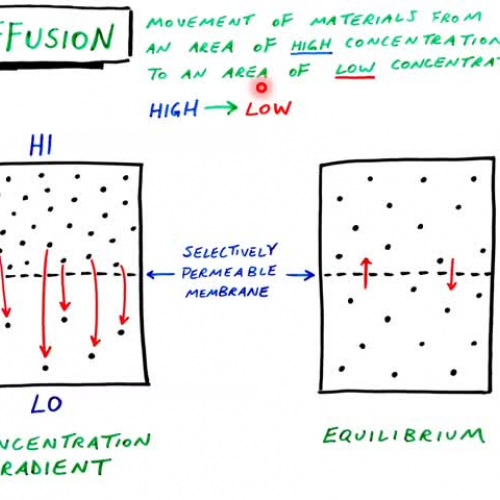 FFUSION
MOVEMENT OF MATERIALS FROM
AN AREA OF HIGH CONCENTRATION
TO AN AREA OF LOW CONCENTRAT
HIGH → LOW
HI
SELECTIVELY
PERMEABLE
MEMBRANE
LO
NCENTRATION
RADIENT
EQUILIBRIUM